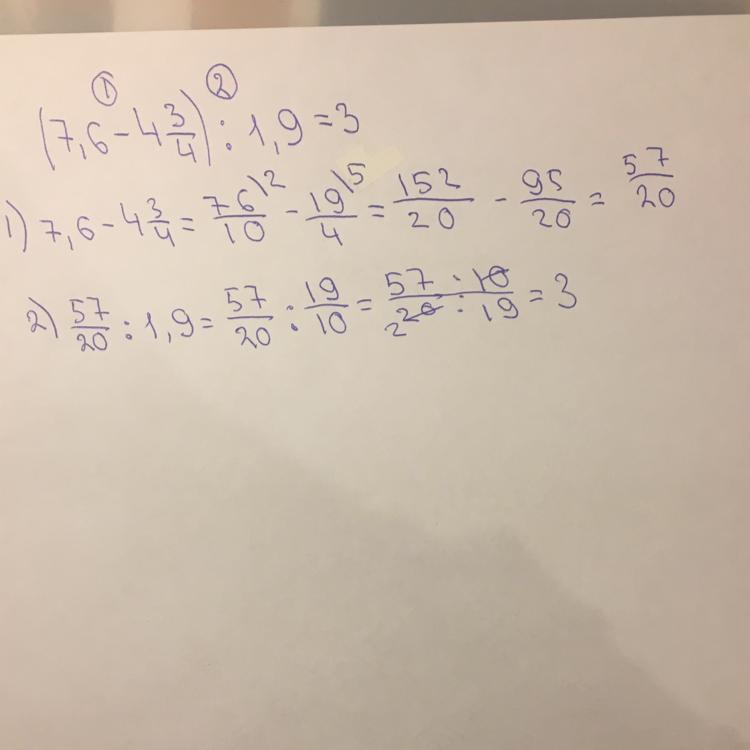 ① ②
(7,6 - 4 3/4) : 1,9 = 3
1) 7,6 - 4 3/4 = 76\2/10 - 19\5/4 = 152/20 - 95/20 = 57/20
2) 57/20 : 1,9 = 57/20 : 19/10 = 57 · 10/2 20 : 19 = 3